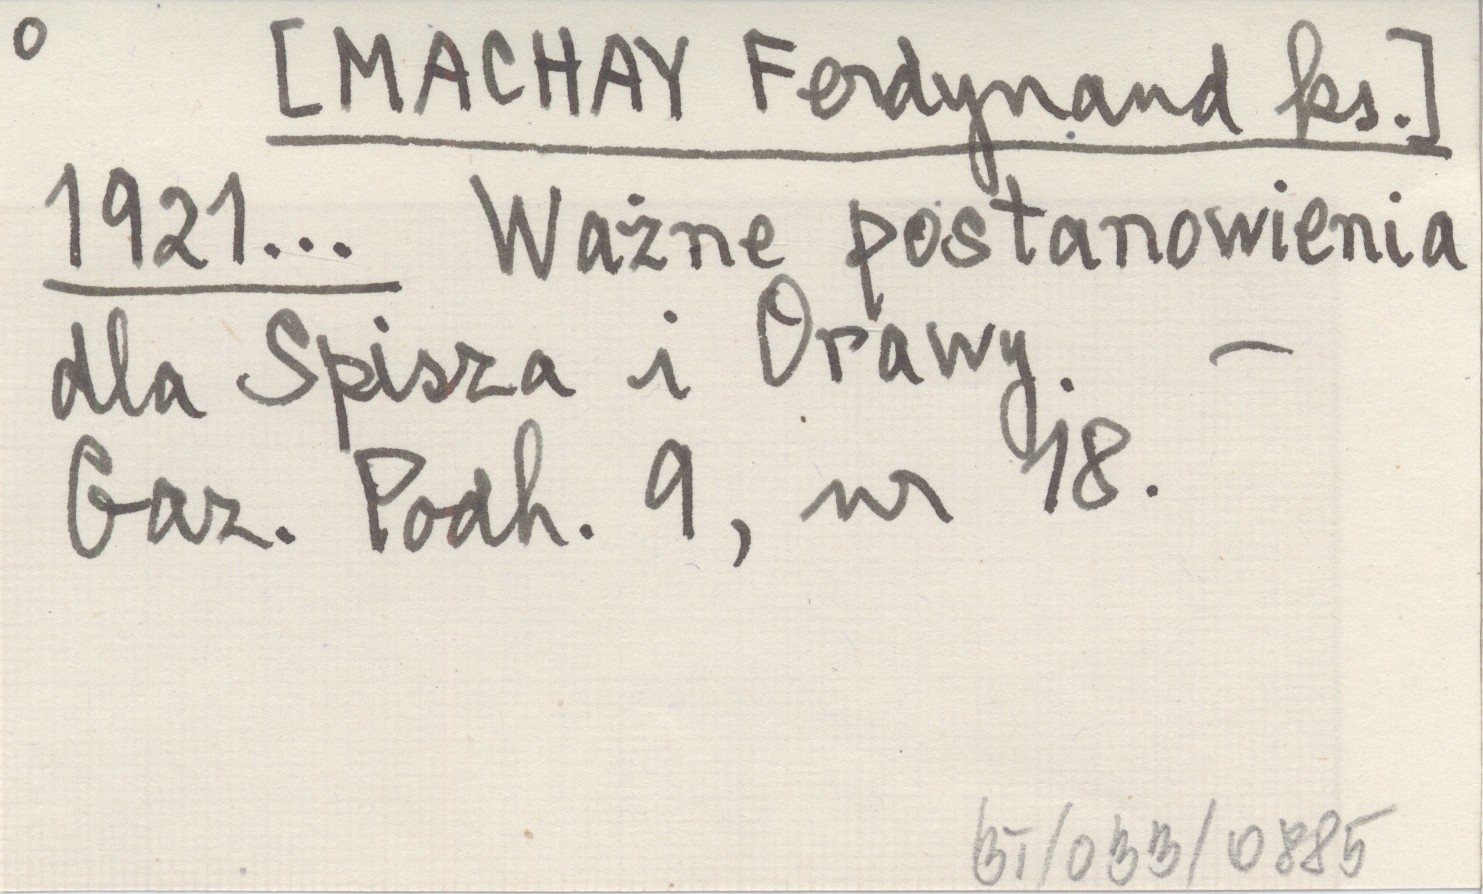 o [MACHAY Ferdynand ks.]
1921... Ważne postanowienia
dla Spisza i Orawy. –
Gaz. Podh. 9, nr 18.
BI/033/0885